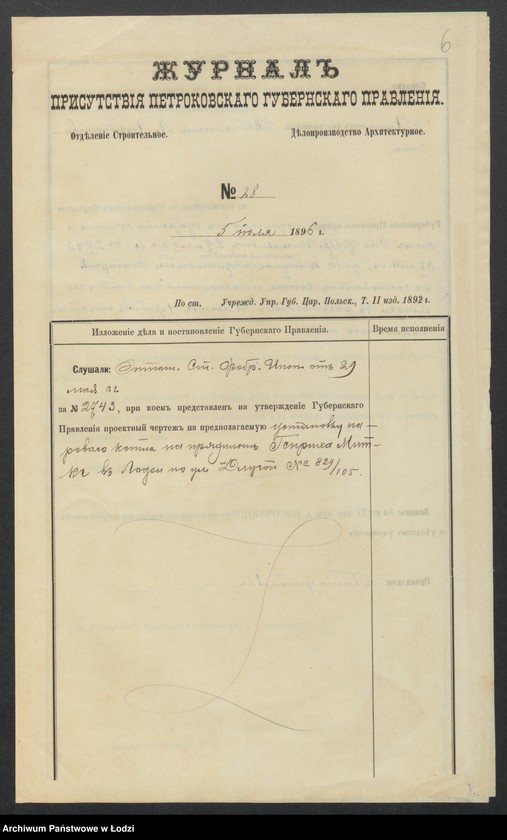 6
ЖУРНАЛЪ
ПРИСУТСТВІЯ ПЕТРОКОВСКАГО ГУБЕРНСКАГО ПРАВЛЕНІЯ.
Отдѣленіе Строительное. Дѣлопроизводство Архитектурное.
№ 28
5 іюля 1896 г.
По ст. Учрежд. Упр. Губ. Цар. Польск., Т. II изд. 1892 г.
Изложеніе дѣла и постановленіе Губернскаго Правленія. Время исполненія
Слушали: Ст. Фабр. Инсп. отъ 29
мая
за № 2743, при коемъ представленъ на утвержденіе Губернскаго
Правленія проектный чертежъ на предполагаемую установку па-
роваго котла на Гирша Мит-
ке въ Лодзи по ул Длугой № 829/105.
Archiwum Państwowe w Łodzi